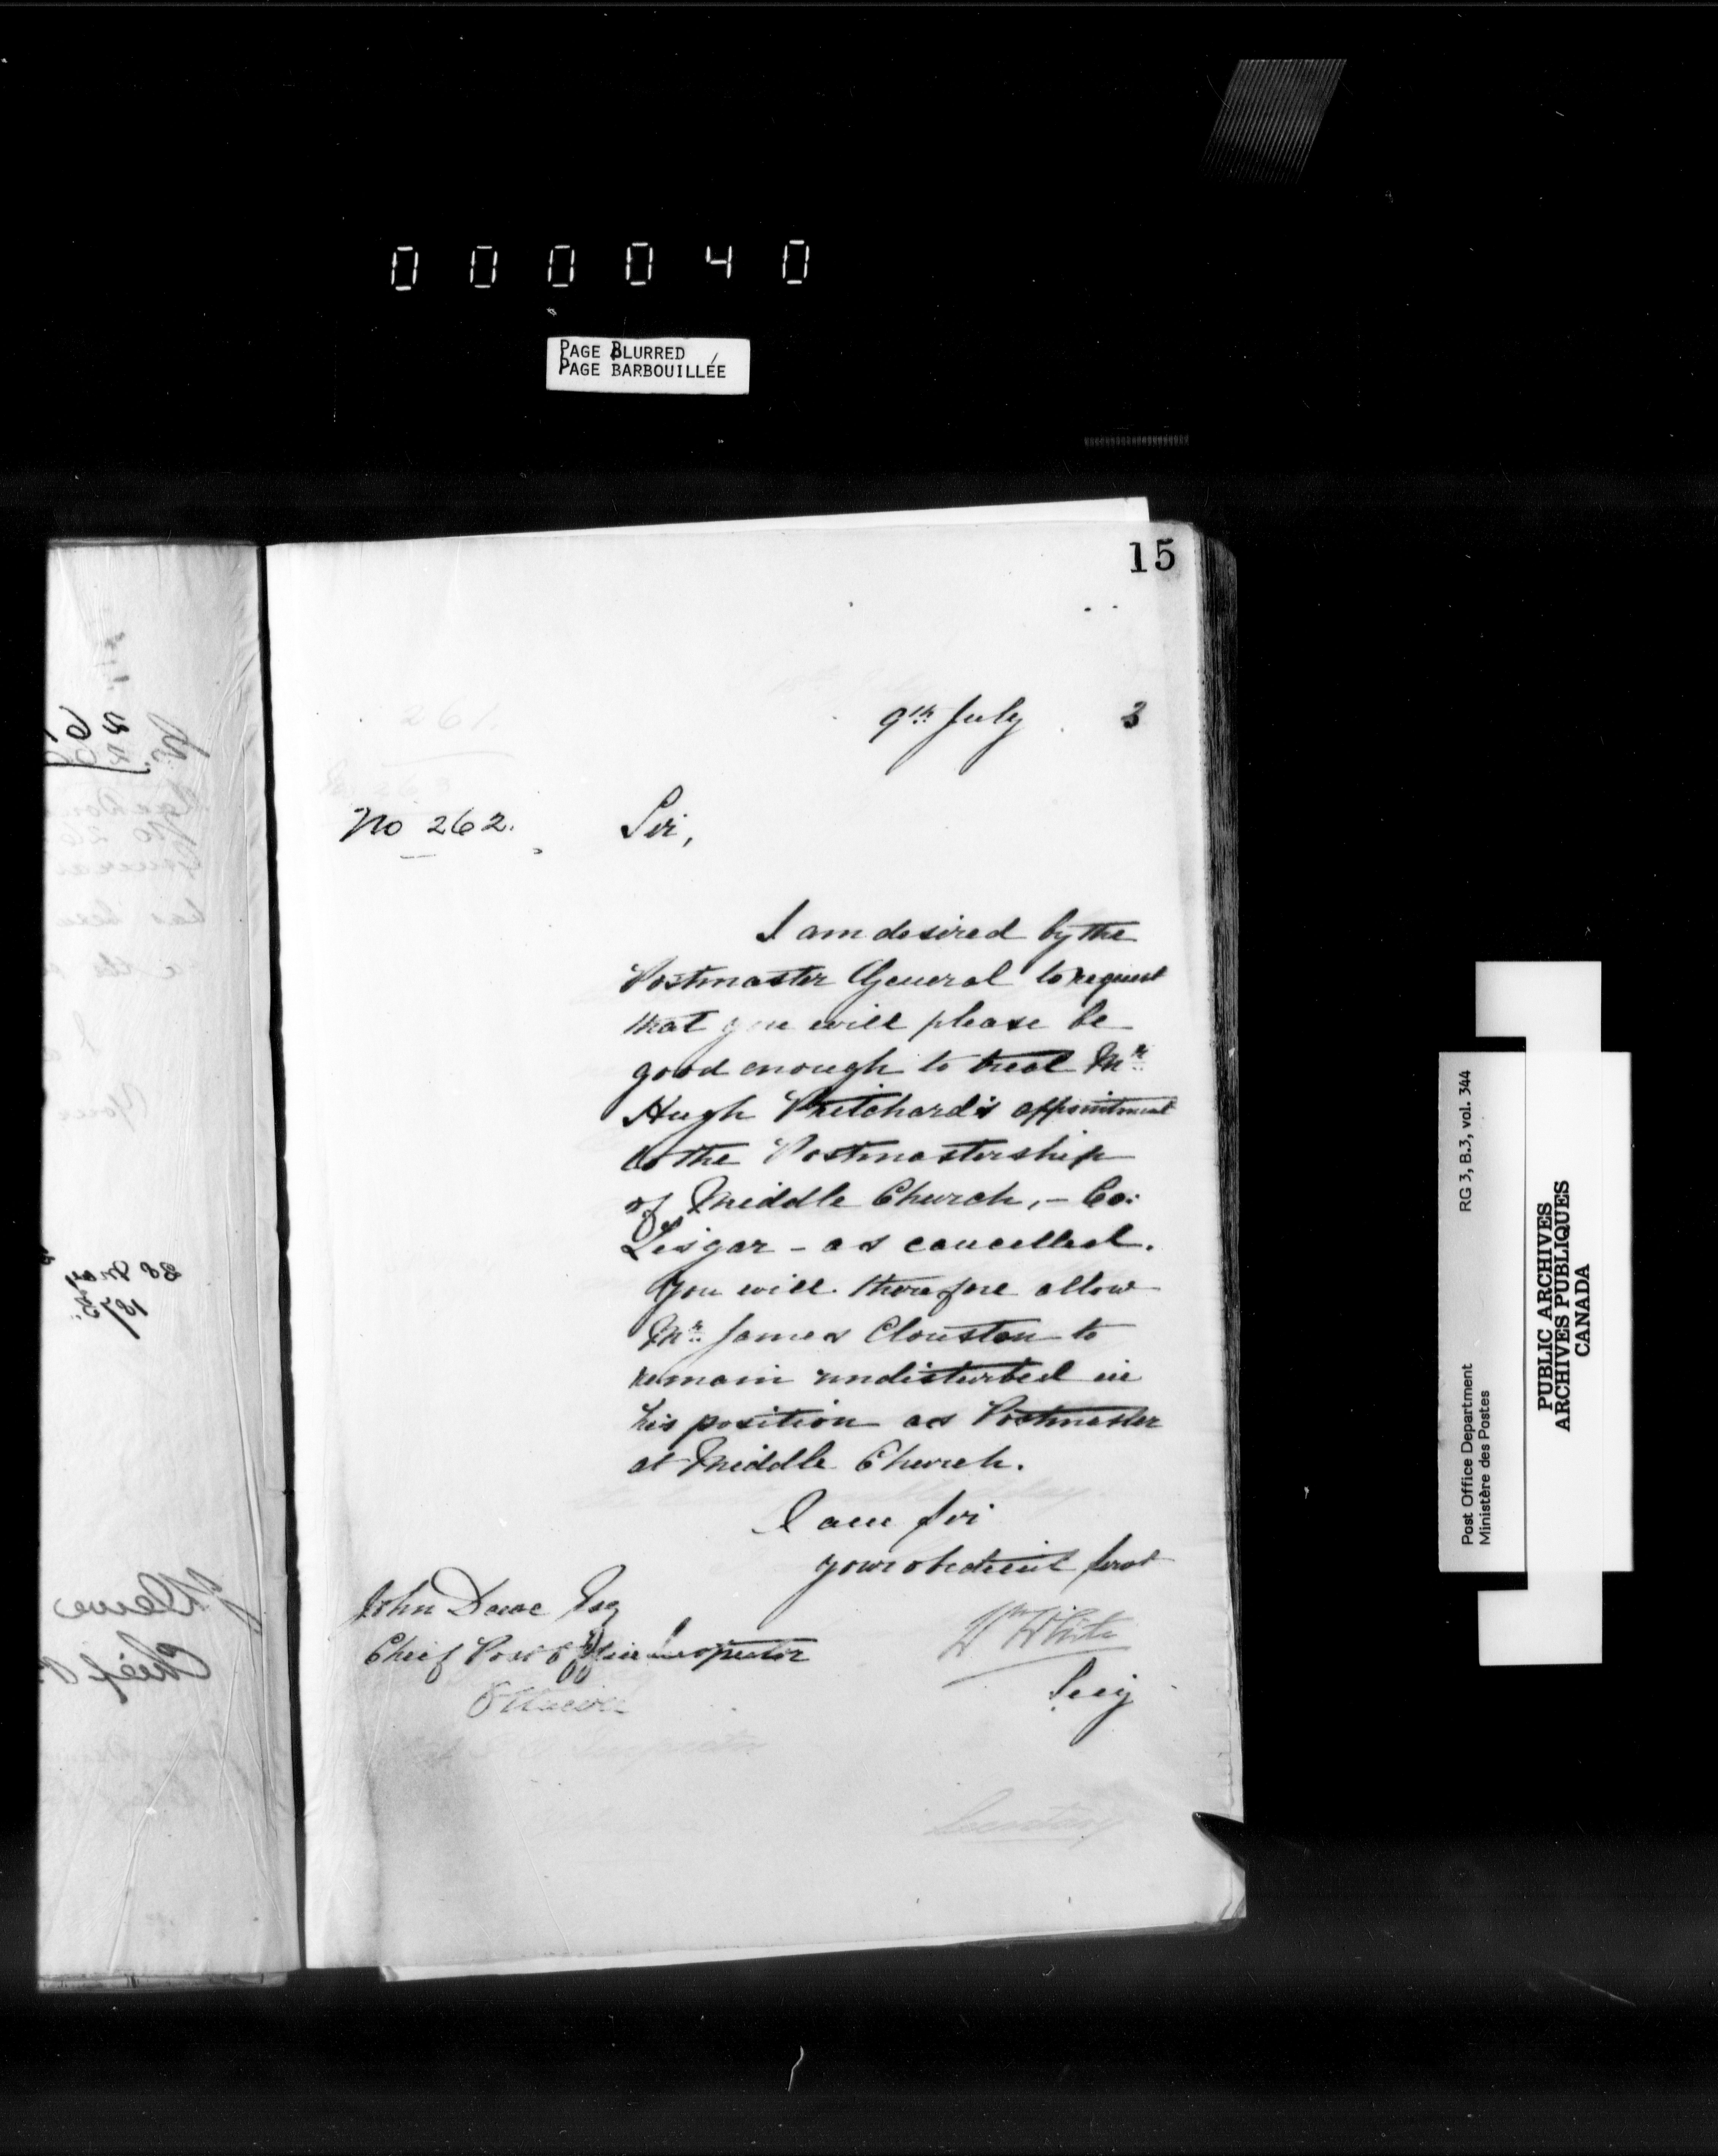 000040
PAGE BLURRED
PAGE BARBOUILLÉE
15
9th July 3
No 262.
Sir,
I am desired by the
Postmaster General to request
that you will please be
good enough to treat Mr
Hugh Pritchard's appointment
to the Postmastership
of Middle Church, - Co:
Lisgar - as cancelled.
You will therefore allow
Mr. James Clouston to
remain undisturbed in
his position as Postmaster
at Middle Church.
I am Sir
your obedient servt
John Dewe Esq
Chief Post Office Inspector
Ottawa
Wm White
Secy
Secretary
Post Office Department
Ministère des Postes
RG 3, B.3, vol. 344
PUBLIC ARCHIVES
ARCHIVES PUBLIQUES
CANADA